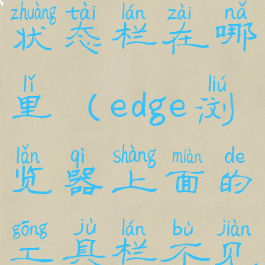 zhuàng tài lán zài nǎ
状态栏在哪
lǐ liú
里（edge浏
lǎn qì shàng miàn de
览器上面的
gōng jù lán bù jiàn
工具栏不见